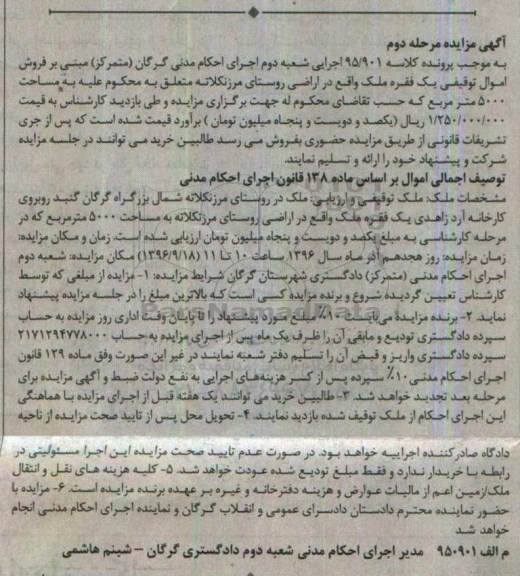 آگهی مزایده مرحله دوم
به موجب پرونده کلاسه ۹۵/۹۰۱ اجرایی شعبه دوم اجرای احکام مدنی گرگان (متمرکز) مبنی بر فروش
اموال توقیفی یک فقره ملک واقع در اراضی روستای مرزنکلاته متعلق به محکوم علیه به مساحت
۵۰۰۰ متر مربع که حسب تقاضای محکوم له جهت برگزاری مزایده و طی بازدید کارشناس به قیمت
۱/۲۵۰/۰۰۰/۰۰۰ ریال (یکصد و دویست و پنجاه میلیون تومان) برآورد قیمت شده است که پس از جری
تشریفات قانونی از طریق مزایده حضوری بفروش می رسد طالبین خرید می توانند در جلسه مزایده
شرکت و پیشنهاد خود را ارائه و تسلیم نمایند.
توصیف اجمالی اموال بر اساس ماده ۱۳۸ قانون اجرای احکام مدنی
مشخصات ملک: ملک توقیفی و ارزیابی: ملک در روستای مرزنکلاته شمال بزرگراه گرگان گنبد روبروی
کارخانه آرد زاهدی یک فقره ملک واقع در اراضی روستای مرزنکلاته به مساحت ۵۰۰۰ مترمربع که در
مرحله کارشناسی به مبلغ یکصد و دویست و پنجاه میلیون تومان ارزیابی شده است. زمان و مکان مزایده:
زمان مزایده: روز هجدهم آذر ماه سال ۱۳۹۶ ساعت ۱۰ تا ۱۱ (۱۳۹۶/۹/۱۸) مکان مزایده: شعبه دوم
اجرای احکام مدنی (متمرکز) دادگستری شهرستان گرگان شرایط مزایده: ۱- مزایده از مبلغی که توسط
کارشناس تعیین گردیده شروع و برنده مزایده کسی است که بالاترین مبلغ را در جلسه مزایده پیشنهاد
نماید. ۲- برنده مزایده می‌بایست ۱۰٪ مبلغ مورد پیشنهاد را تا پایان وقت اداری روز مزایده به حساب
سپرده دادگستری تودیع و مابقی آن را ظرف یک ماه پس از اجرای مزایده به حساب ۲۱۷۱۲۹۴۷۷۸۰۰۰
سپرده دادگستری واریز و قبض آن را تسلیم دفتر شعبه نمایند در غیر این صورت وفق ماده ۱۲۹ قانون
اجرای احکام مدنی ۱۰٪ سپرده پس از کسر هزینه‌های اجرایی به نفع دولت ضبط و آگهی مزایده برای
مرحله بعد تجدید خواهد شد. ۳- طالبین خرید می توانند یک هفته قبل از اجرای مزایده با هماهنگی
این اجرای احکام از ملک توقیف شده بازدید نمایند. ۴- تحویل محل پس از تایید صحت مزایده از ناحیه
دادگاه صادرکننده اجراییه خواهد بود. در صورت عدم تایید صحت مزایده این اجرا مسئولیتی در
رابطه با خریدار ندارد و فقط مبلغ تودیع شده عودت خواهد شد. ۵- کلیه هزینه های نقل و انتقال
ملک/زمین اعم از مالیات عوارض و هزینه دفترخانه و غیره بر عهده برنده مزایده است. ۶- مزایده با
حضور نماینده محترم دادستان دادسرای عمومی و انقلاب گرگان و نماینده اجرای احکام مدنی انجام
خواهد شد
م الف ۹۵۰۹۰۱ مدیر اجرای احکام مدنی شعبه دوم دادگستری گرگان – شبنم هاشمی